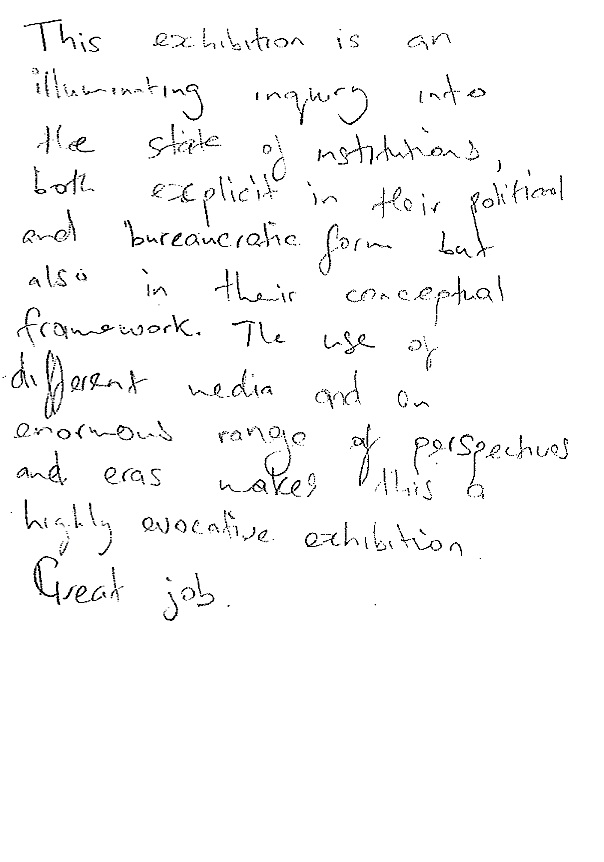 This exhibition is an
illuminating inquiry into
the state of institutions,
both explicit in their political
and bureaucratic form but
also in their conceptual
framework. The use of
different media and an
enormous range of perspectives
and eras makes this a
highly evocative exhibition.
Great job.